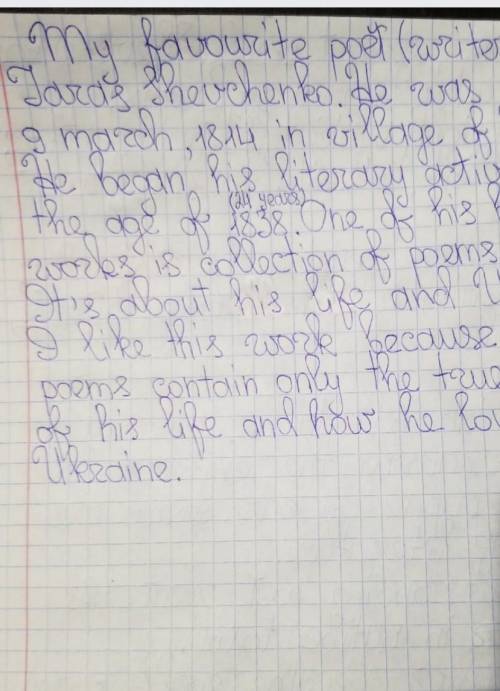 My favourite poet (writer
Taras Shevchenko. He was
9 march, 1814 in village of
He began his literary activ
(24 years)
the age of 1838. One of his
works is collection of poems
It's about his life and
I like this work because
poems contain only the true
of his life and how he lo
Ukraine.